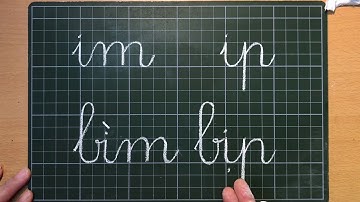 im ip
bìm bịp